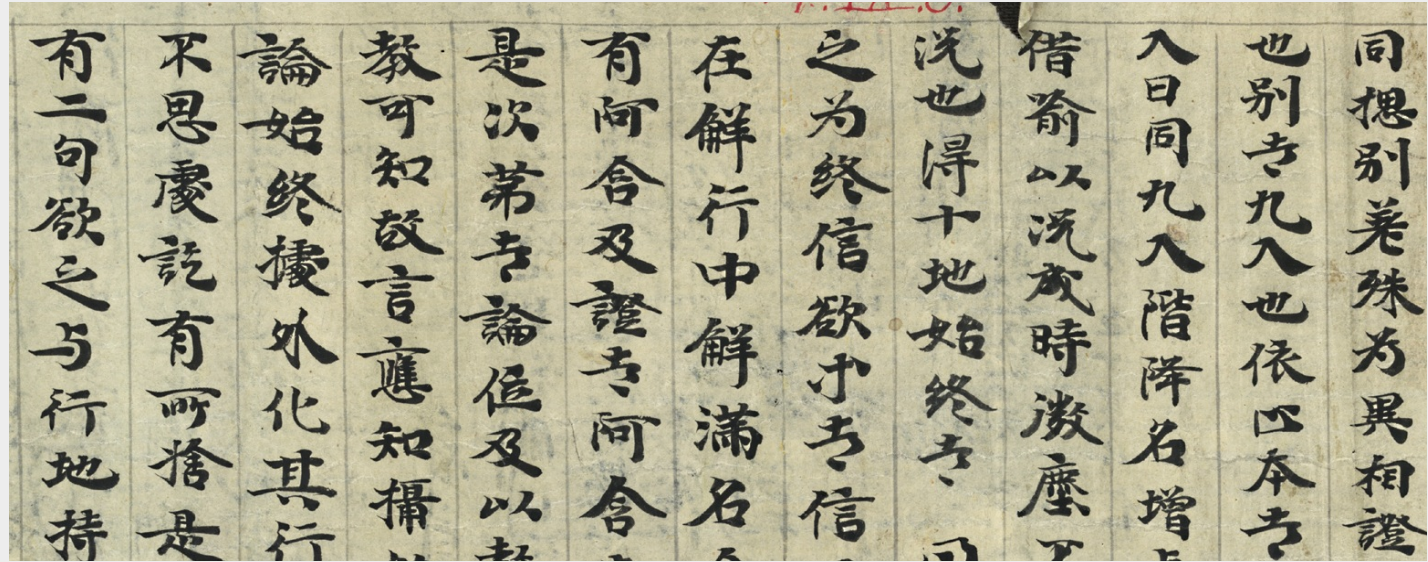 同揔别差殊为異相證
也别者九入也依此本者
入曰同九入階降名增
借喻以况成時㣲塵不
况也得十地始終者
之为終信欲等者信
在解行中解滿名
有阿含及證者阿含
是次第者論俱及以
教可知故言應知攝
論始終據外化其行
不思處訖有所捨是
有二句欲之与行地持